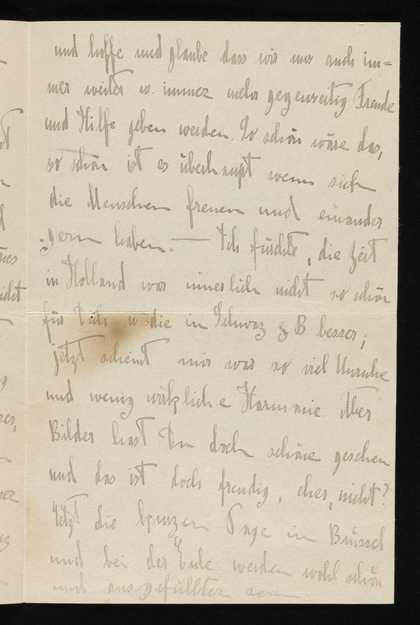 und hoffe und glaube dass wir uns auch im=
mer weiter u. immer mehr gegenseitig Freude
und Hilfe geben werden. So schön wäre das,
so schön ist es überhaupt wenn sich
die Menschen freuen und einander
gern haben. — Ich fürchte, die Zeit
in Holland war innerlich nicht so schön
für Dich wie die in Schwaz z B besser;
jetzt scheint mir war so viel Unruhe
und wenig wirkliche Harmonie. Aber
Bilder hast Du doch schöne gesehen
und das ist doch freudig, eher, nicht?
Jetzt die ganzen Tage in Brüssel
und bei der Eule werden wohl schön
und ausgefüllter sein